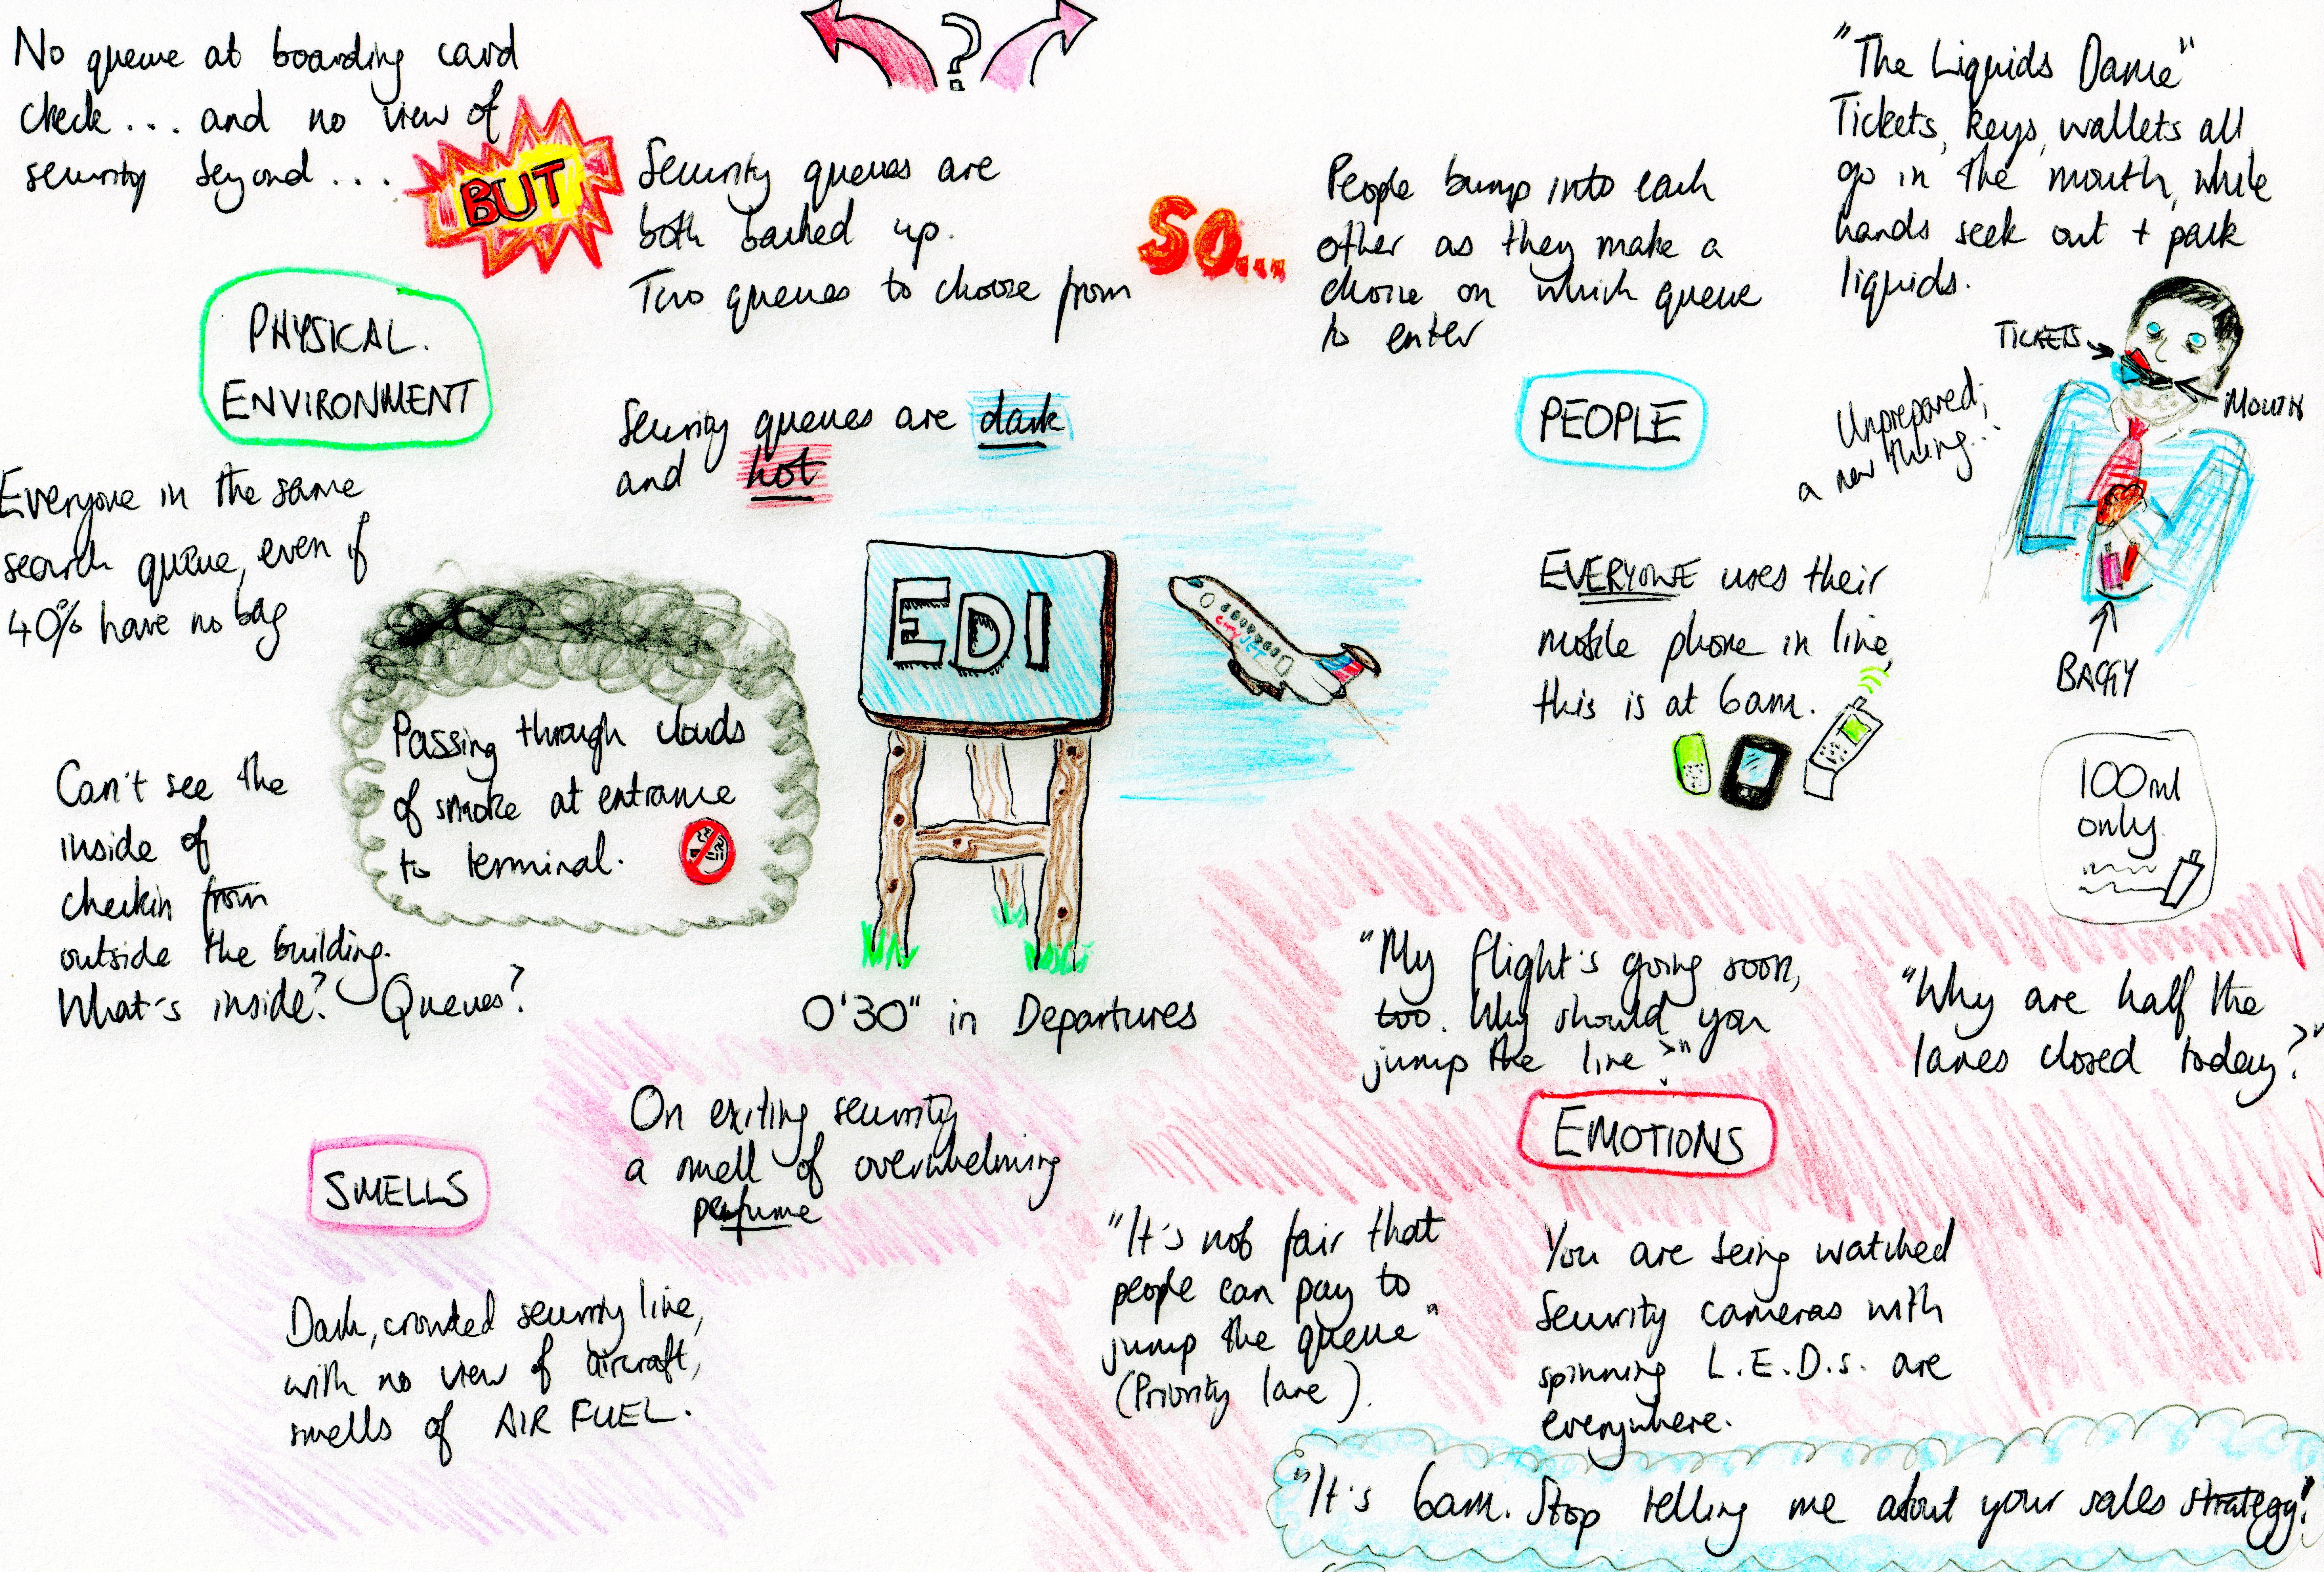 No queue at boarding card
check... and no view of
security beyond...
BUT
Security queues are
both backed up.
Two queues to choose from
?
SO...
People bump into each
other as they make a
choice on which queue
to enter
"The Liquids Dance"
Tickets, keys, wallets all
go in the mouth, while
hands seek out + pack
liquids.
TICKETS
MOUTH
Unprepared;
a new thing...
BAGGY
100ml
only.
PHYSICAL.
ENVIRONMENT
Security queues are dark
and hot
PEOPLE
Everyone in the same
search queue, even if
40% have no bag
EVERYONE uses their
mobile phone in line,
this is at 6am.
Passing through clouds
of smoke at entrance
to terminal.
EDI
cityJET
Can't see the
inside of
checkin from
outside the building.
What's inside? Queues?
0'30" in Departures
"My flight's going soon,
too. Why should you
jump the line?"
"Why are half the
lanes closed today?"
EMOTIONS
SMELLS
On exiting security
a smell of overwhelming
perfume
Dark, crowded security line,
with no view of aircraft,
smells of AIR FUEL.
"It's not fair that
people can pay to
jump the queue"
(Priority lane).
You are being watched
Security cameras with
spinning L.E.D.s. are
everywhere.
"It's 6am. Stop telling me about your sales strategy!"